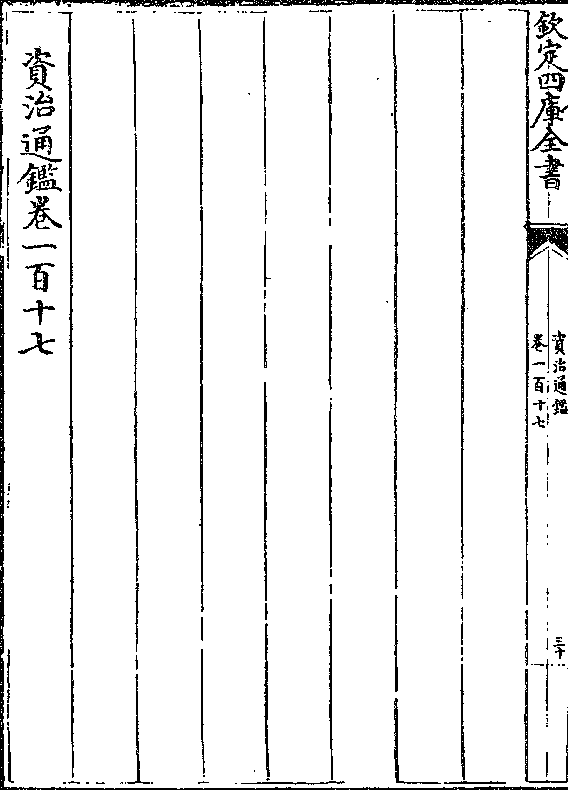 欽定四庫全書
資治通鑑
卷一百十七
三十
資治通鑑卷一百十七